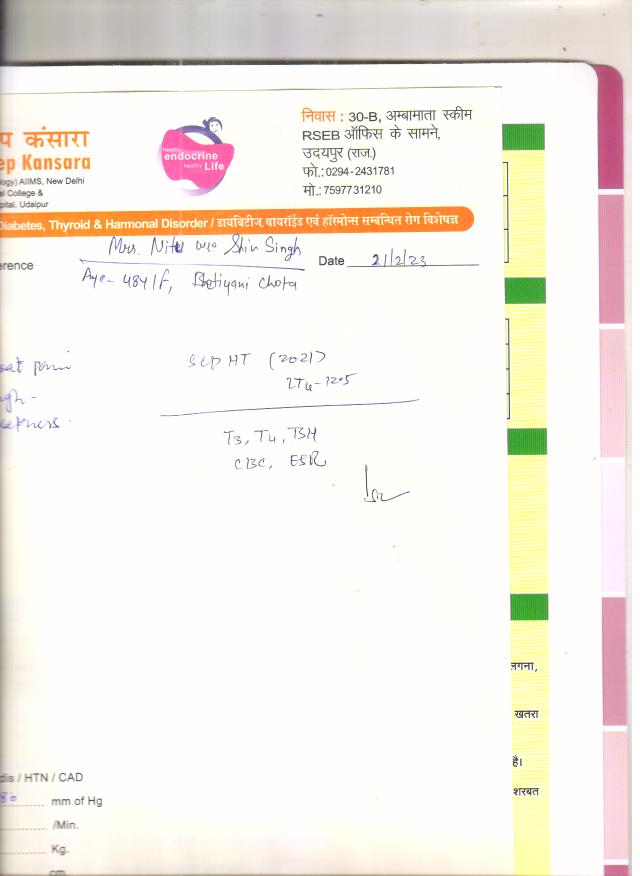 प कंसारा
ep Kansara
ogy) AIIMS, New Delhi
al College &
pital, Udaipur
healthy
endocrine
healthy Life
निवास : 30-B, अम्बामाता स्कीम
RSEB ऑफिस के सामने,
उदयपुर (राज.)
फो.:0294-2431781
मो.:7597731210
Diabetes, Thyroid & Harmonal Disorder / डायबिटीज, थायरॉईड एवं हॉरमोन्स सम्बन्धित रोग विशेषज्ञ
erence
Mrs. Nitu w/o Shiv Singh
Date 21/2/23
Age- 48y/f,
pain
(2021)
T3, T4, TSH
CBC, ESR
लगना,
खतरा
है।
शरबत
dis / HTN / CAD
80 mm of Hg
/Min.
Kg.
cm